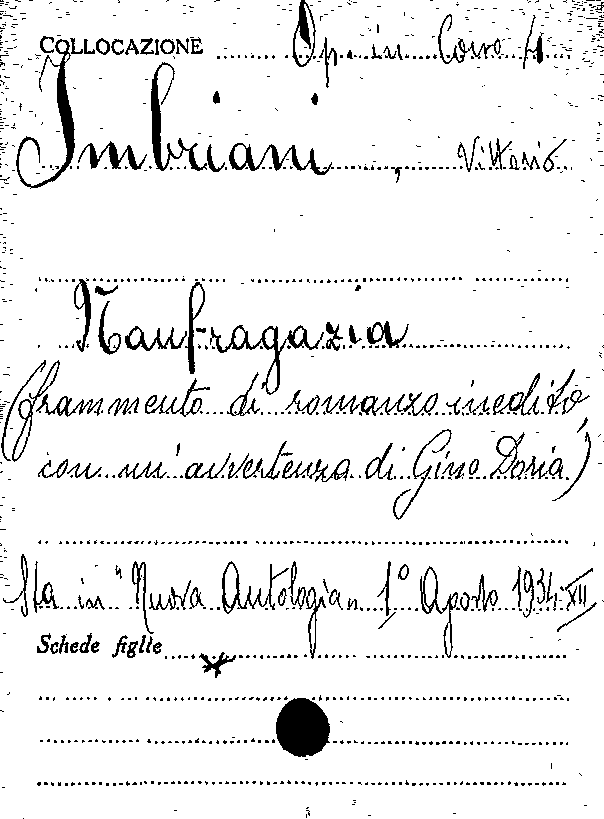 COLLOCAZIONE Op. in Corso 4
Imbriani, Vittorio
Naufragazia
(frammento di romanzo inedito,
con un'avvertenza di Gino Doria)
Sta in "Nuova Antologia" 1° Agosto 1934-XII
Schede figlie